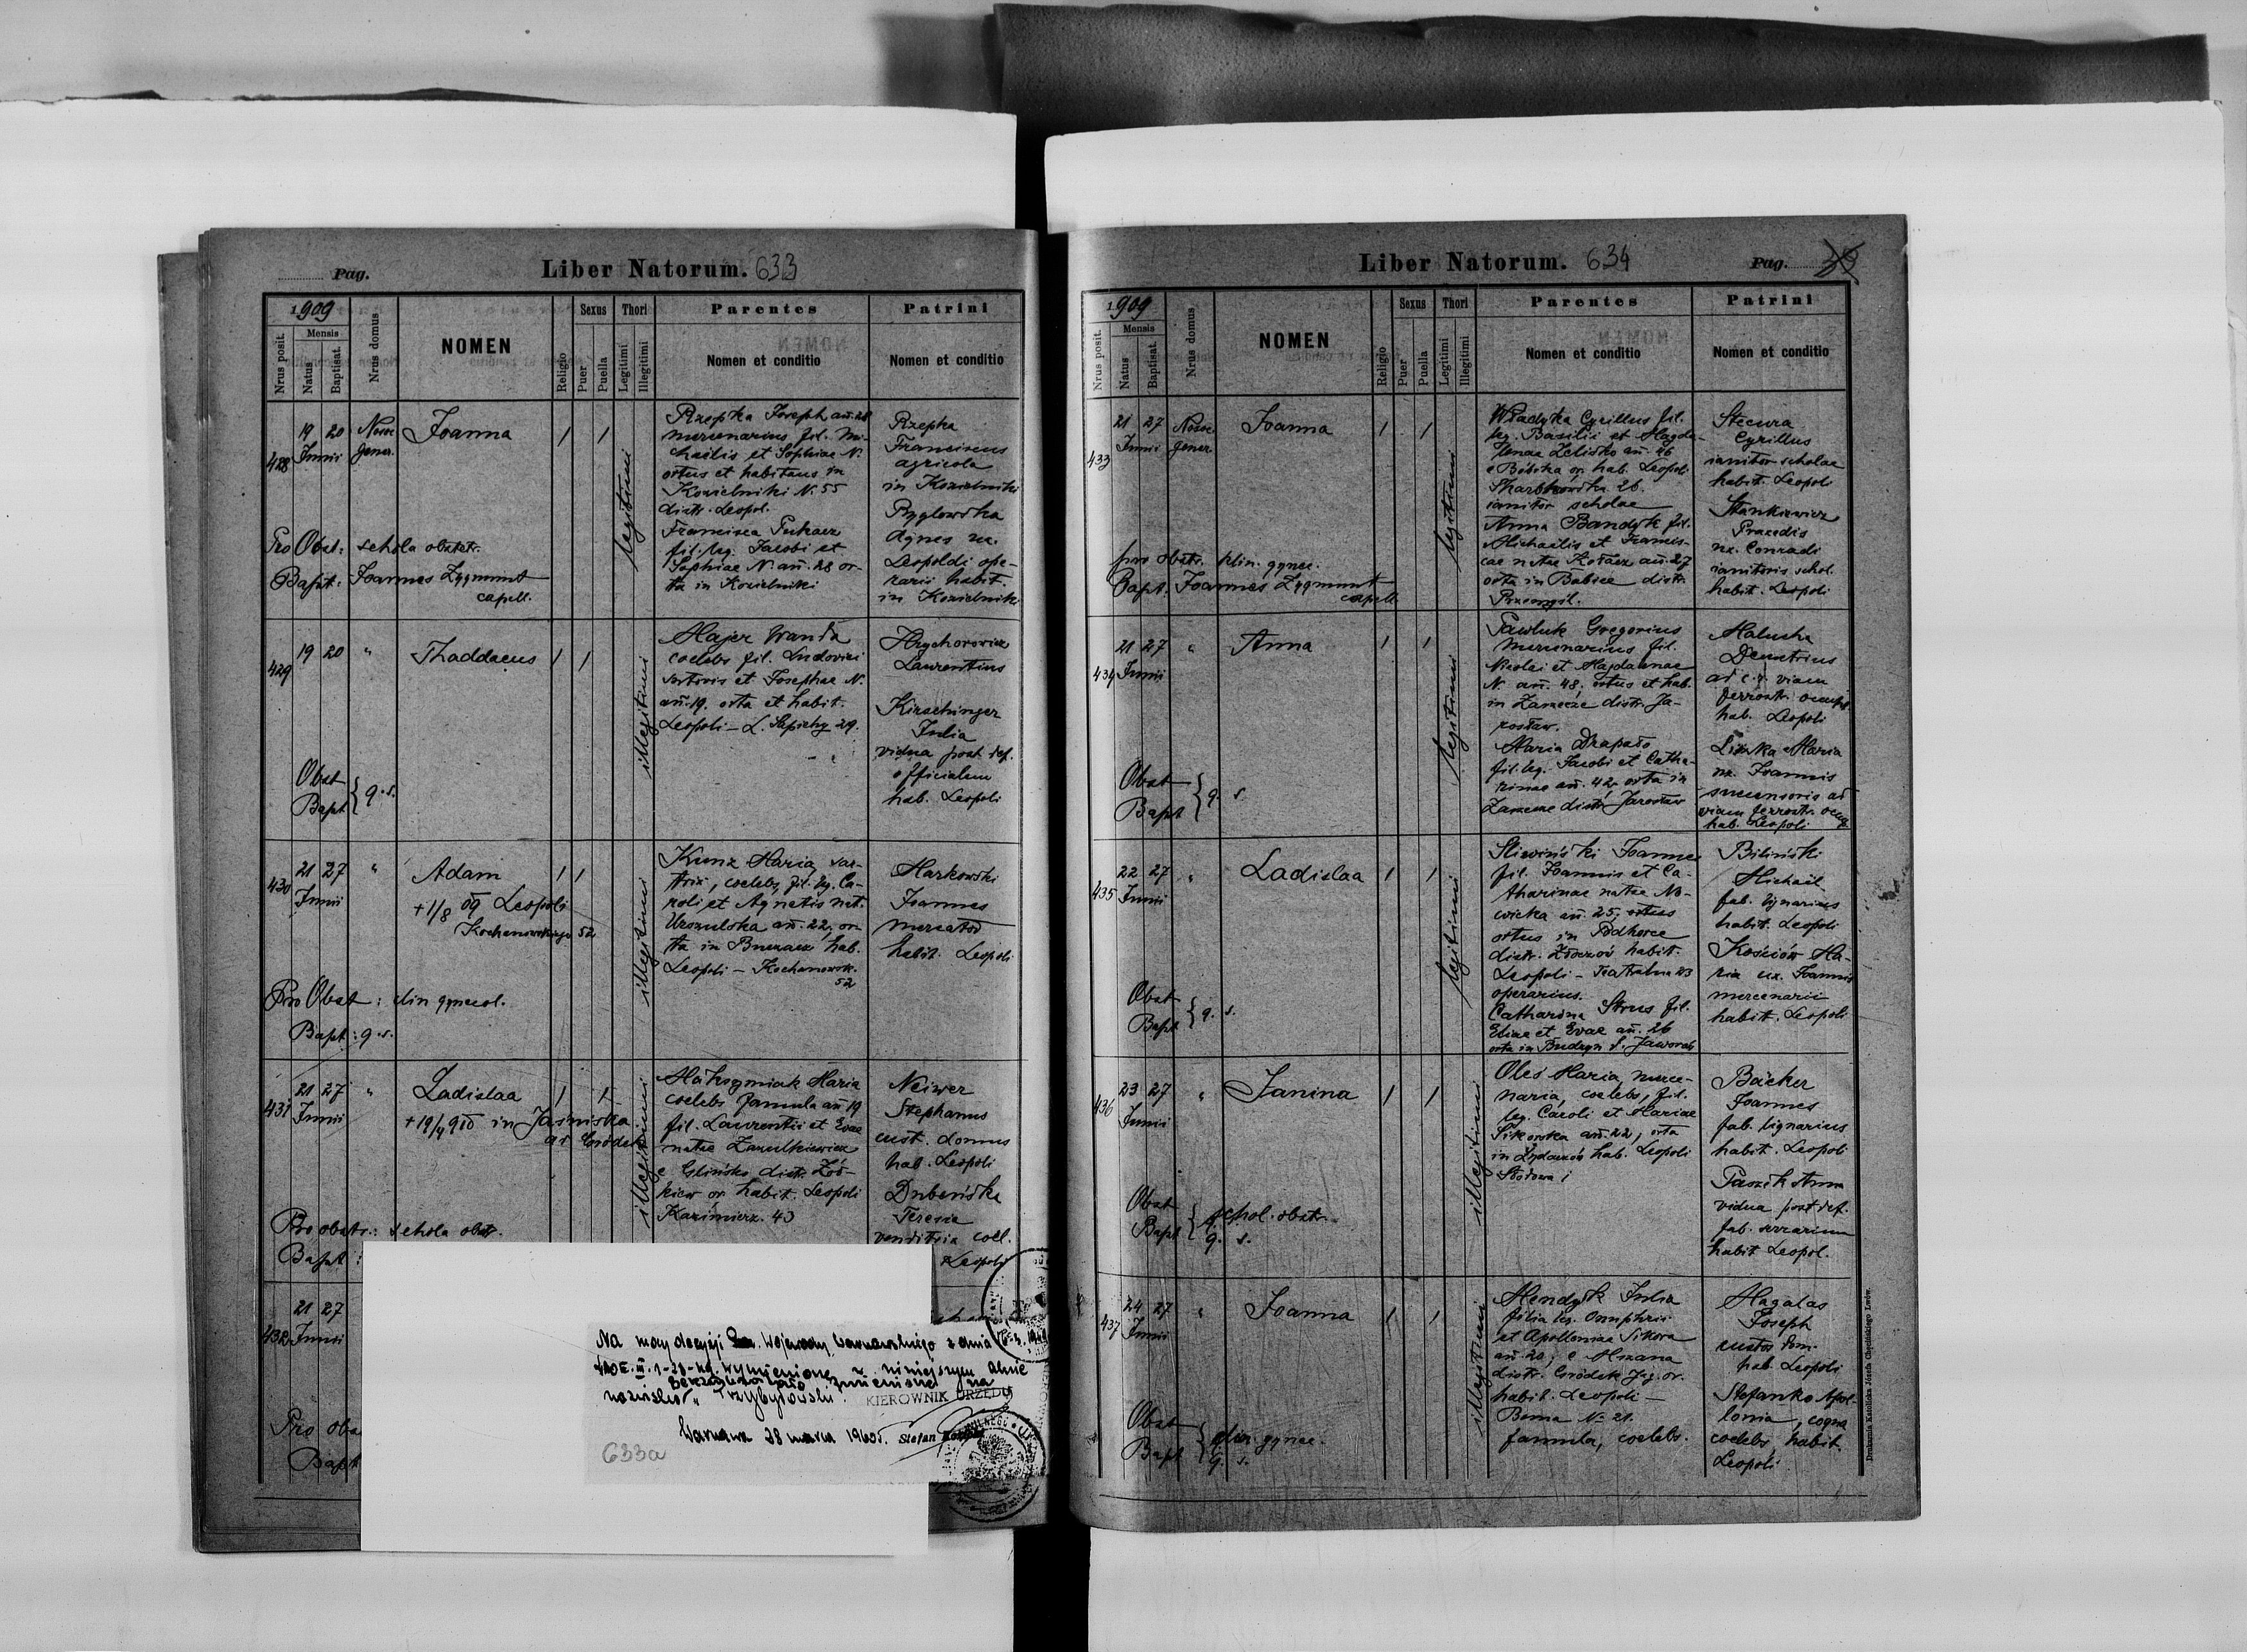 Pag.
Liber Natorum. 633
1909
Nrus posit.
Mensis
Natus
Baptisat.
Nrus domus
NOMEN
Religio
Sexus
Puer
Puella
Thori
Legitimi
Illegitimi
Parentes
Nomen et conditio
Patrini
Nomen et conditio
428
19 20
Junii
Noso
gener.
Joanna
1 1
legitimi
Rzepka Joseph ań. 28
mercenarius fil. Mi-
chaelis et Sophiae N.
ortus et habitans in
Kozielniki N. 55
distr. Leopol.
Francisca
fil. leg. Jacobi et
Sophiae N. ań. 28 or-
ta in Kozielniki
Rzepka
Franciscus
agricola
in Kozielniki
Agnes ux.
Leopoldi ope-
rarii habit.
in Kozielniki
Pro Obst: schola obstetr.
Bapt: Joannes Zygmunt
capell.
429
19 20 "
Thaddaeus
1 1
illegitimi
Majer Wanda
coelebs fil. Ludovici
sartoris et Josephae N.
ań. 19. orta et habit.
Leopoli – L. Sapiehy 29.
Hrychorowicz
Laurentius
Kirschinger
Julia
vidua post def.
officialem
hab. Leopoli
Obst
Bapt } q. s.
430
21 27 "
Junii
Adam
+1/8 09 Leopoli
Kochanowskiego 52
1 1
illegitimi
Kunz Maria, sar-
trix, coelebs, fil. leg. Ca-
roli et Agnetis nat.
Urszulska ań. 22, or-
ta in Buczacz hab.
Leopoli – Kochanowsk.
52
Markowski
Joannes
mercator
habit. Leopoli
Pro Obst: clin gynecol.
Bapt: q. s.
431
21 27 "
Junii
Ladislaa
+19/4 910 in Jaśniska
ad Gródek
1 1
illegitimi
Maksymiak Maria
coelebs famula ań 19
fil. Laurentii et Evae
natae Zazulkiewicz
e Glińsko distr. Żół-
kiew or. habit. Leopoli
Kazimierz. 43
Neiwer
Stephanus
cust. domus
hab. Leopoli
Dubeńska
Teresia
venditria coel.
Leopoli
Pro obstr.: schola obstr.
Bapt:
432
21 27
Junii
Pro obs
Bapt
Na mocy decyzji Wojewody Warszawskiego z dnia
wymienione w niniejszym akcie
zmienione na
nazwisko „Przybyłowski".
KIEROWNIK URZĘDU
Warszawa 28 marca 1960r. Stefan
633a
Liber Natorum. 634
Pag.
1909
Nrus posit.
Mensis
Natus
Baptisat.
Nrus domus
NOMEN
Religio
Sexus
Puer
Puella
Thori
Legitimi
Illegitimi
Parentes
Nomen et conditio
Patrini
Nomen et conditio
433
21 27
Junii
Noso
gener.
Joanna
1 1
legitimi
Władyka Cyrillus fil.
leg. Basilii et Magda-
lenae Zelisko ań. 46
e Bóbrka or. hab. Leopoli
Skarbkowska 26.
ianitor scholae
Anna Bandyk fil.
Michaelis et Francis-
cae natae ań. 27
orta in Babice distr.
Przemyśl.
Stecura
Cyrillus
ianitor scholae
habit. Leopoli
Stankiewicz
Praxedis
ux. Conradi
ianitoris schol.
habit. Leopoli
pro obstr. klin. gynec.
Bapt. Joannes Zygmunt
capell.
434
21 27 "
Junii
Anna
1 1
legitimi
Pawluk Gregorius
mercenarius fil.
Nicolai et Magdalenae
N. ań. 48, ortus et hab.
in Zarzecze distr. Ja-
rosław.
Maria Drapało
fil. leg. Jacobi et Catha-
rinae ań. 42 orta in
Zarzecze distr Jarosław
Malucha
Demetrius
ad c. r. viam
ferreatr. occup.
hab. Leopoli
Maria
ux. Joannis
succensoris ad
viam ferreatr. occup
hab. Leopoli
Obst
Bapt } q. s.
435
22 27 "
Junii
Ladislaa
1 1
legitimi
Sliwiński Joannes
fil. Joannis et Ca-
tharinae natae No-
wicka ań. 25, ortus
ortus in Podhorce
distr. Złoczów habit.
Leopoli – Teatralna 23
operarius.
Catharina Strus fil.
Eliae et Evae ań. 26
orta in Budzyn d. Jaworów
Biliński
Michaël
fab. lignarius
habit. Leopoli
Kościów Ma-
ria ux. Joannis
mercenarii
habit. Leopoli
Obst
Bapt } q. s.
436
23 27 "
Junii
Janina
1 1
illegitimi
Oleś Maria, merce-
naria, coelebs, fil.
leg. Caroli et Mariae
Sikorska ań. 22, orta
in Żydaczów hab. Leopoli
Słodowa 1
Bäcker
Joannes
fab. lignarius
habit. Leopoli
Paszek Anna
vidua post def.
fab. serrarium
habit Leopol.
Obst
Bapt } schol. obstr.
q. s.
437
24 27 "
Junii
Joanna
1 1
illegitimi
Mendyk Julia
filia leg. Onuphrii
et Apolloniae Sikora
ań. 20, e Mszana
distr. Gródek Jag. or.
habit. Leopoli –
Bema № 21.
famula, coelebs.
Magalas
Joseph
custos dom.
hab. Leopoli
Stefanko Apol-
lonia, coqua
coelebs, habit.
Leopoli
Obst
Bapt } clin. gynec.
q. s.
Drukarnia Katolicka Józefa Chęcińskiego Lwów.